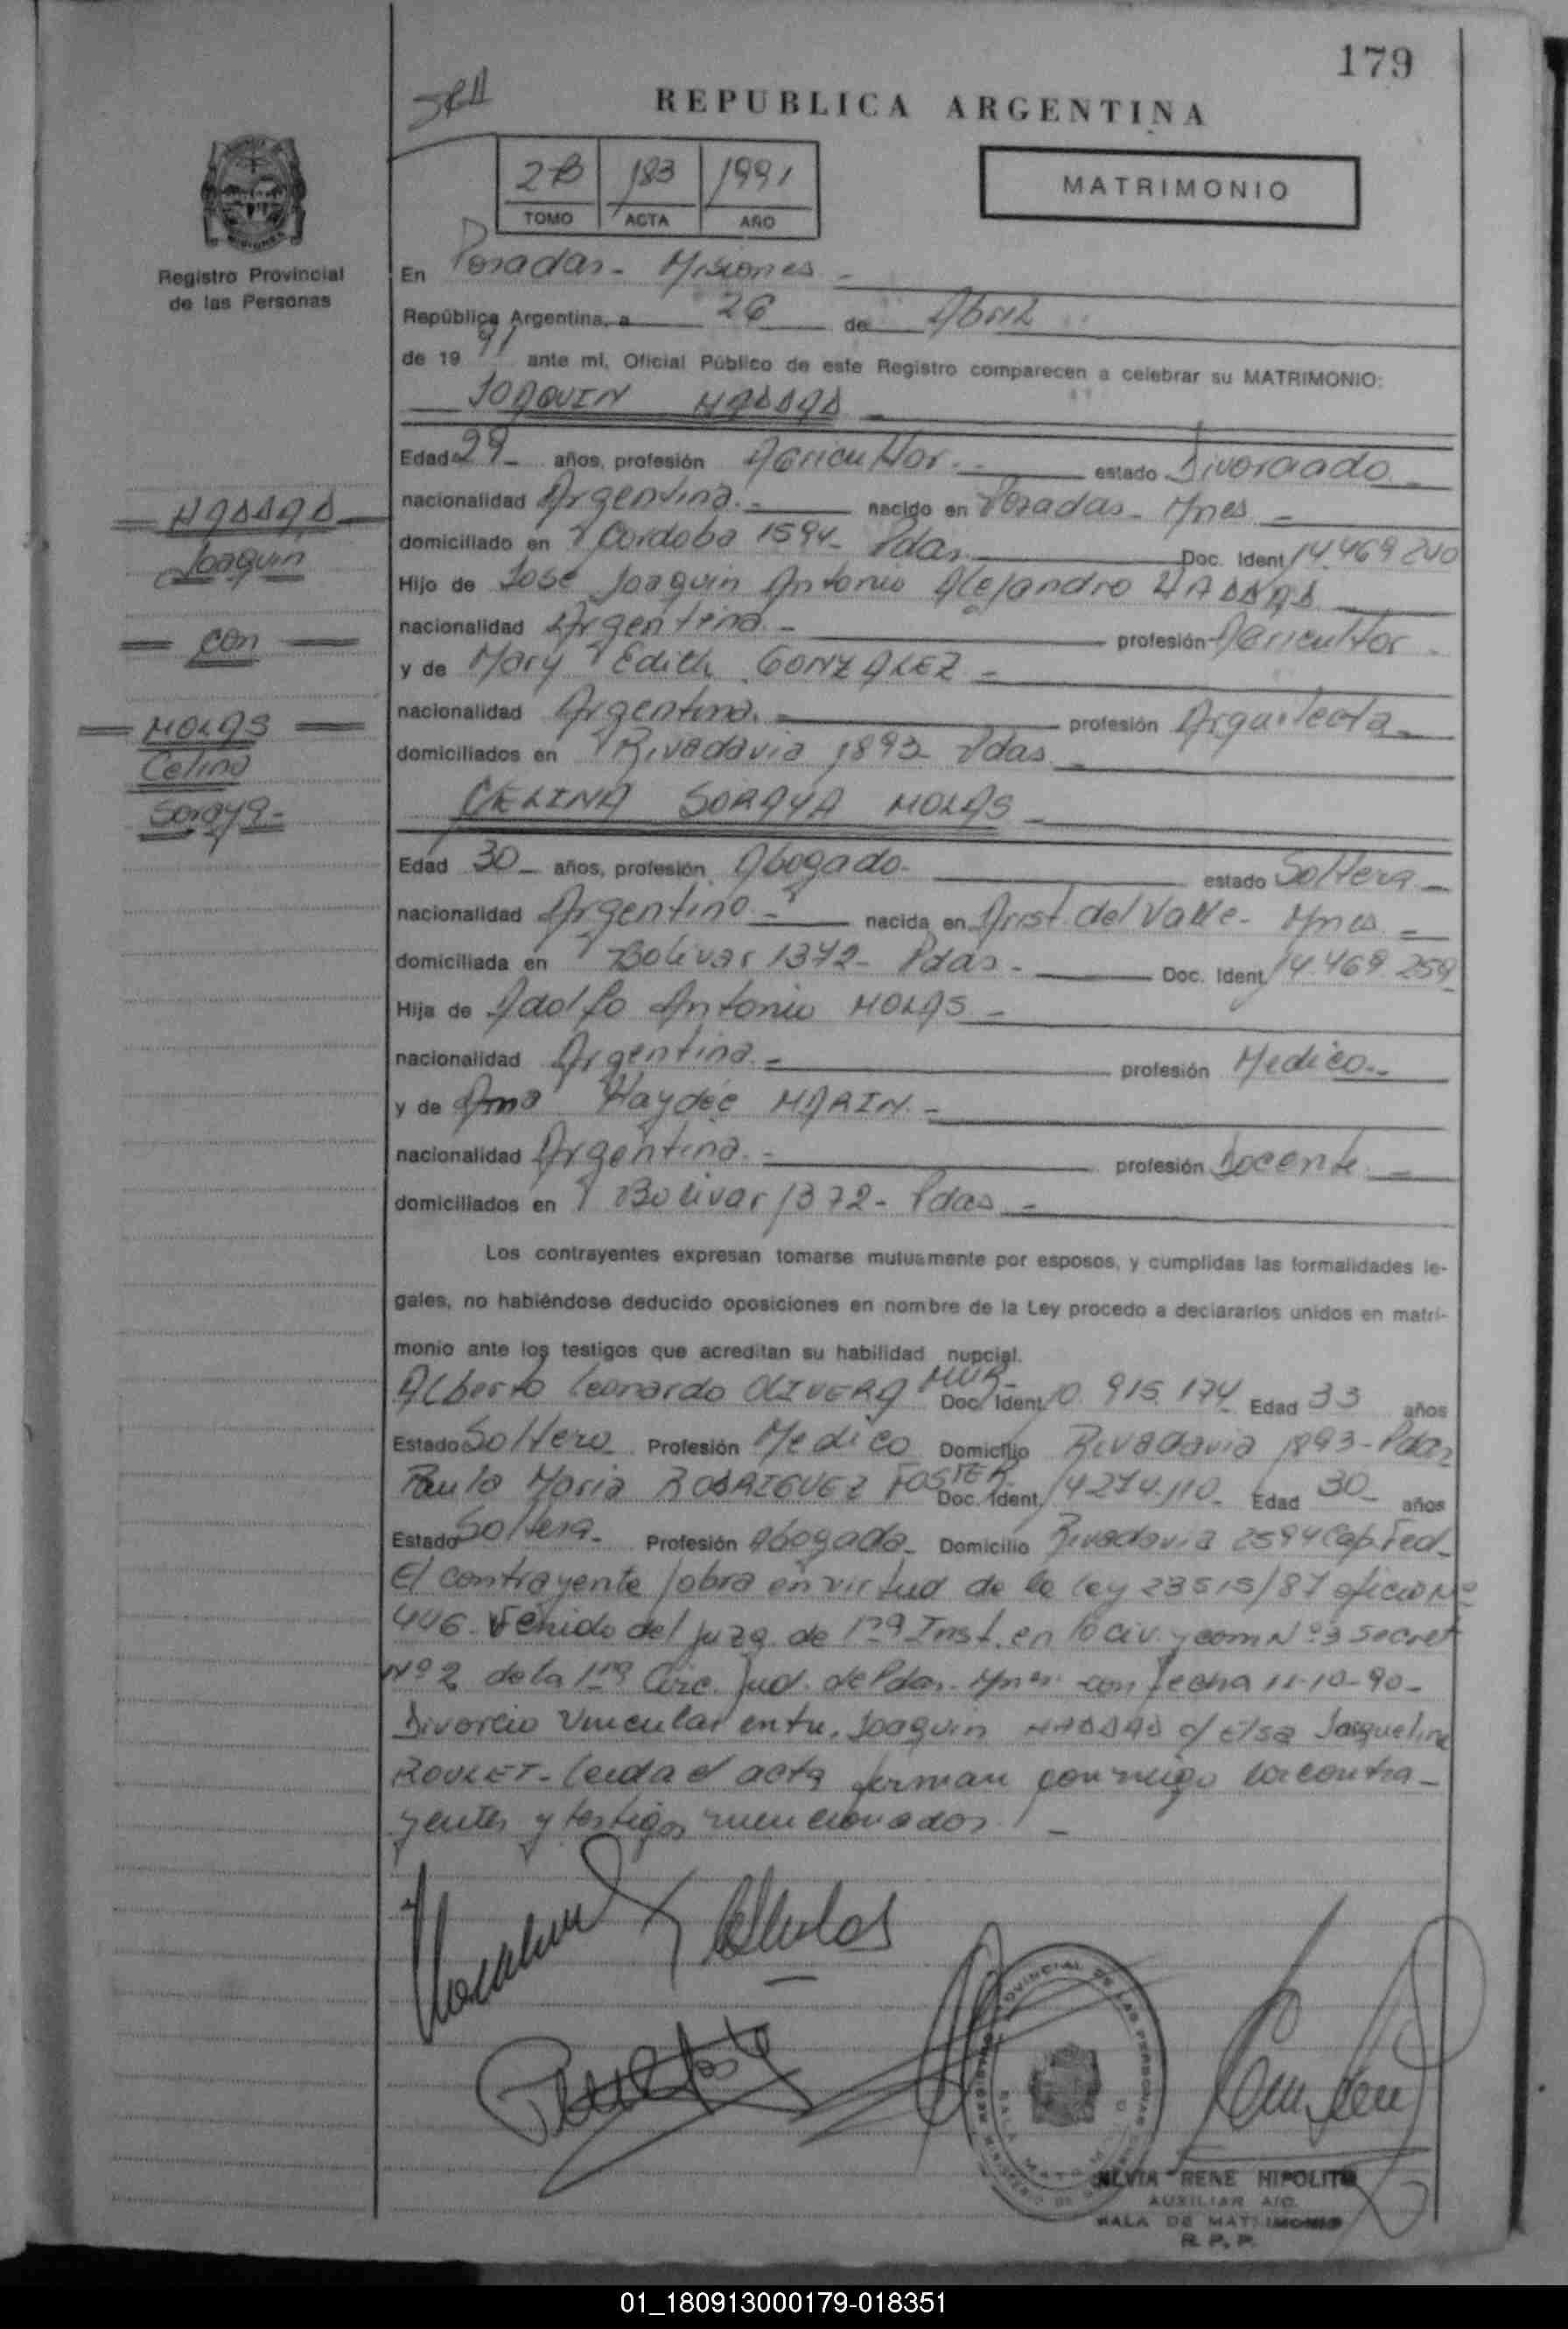 179
REPUBLICA ARGENTINA
2B 183 1991
TOMO ACTA AÑO
MATRIMONIO
Registro Provincial
de las Personas
En Posadas - Misiones -
República Argentina, a 26 de Abril
de 19 91 ante mí, Oficial Público de este Registro comparecen a celebrar su MATRIMONIO:
JOAQUIN HADDAD -
Edad 29 - años, profesión Agricultor.- estado Divorciado.-
nacionalidad Argentina.- nacido en Posadas - Mnes -
domiciliado en Cordoba 1594 - Pdas. Doc. Ident. 14.469 240
Hijo de José Joaquin Antonio Alejandro HADDAD
nacionalidad Argentina.- profesión Agricultor -
y de Mary Edith GONZALEZ -
nacionalidad Argentina.- profesión Arquitecta -
domiciliados en Rivadavia 1893 - Pdas. -
CELINA SORAYA MOLAS -
HADDAD
Joaquin
con
MOLAS
Celina
Soraya -
Edad 30 - años, profesión Abogado - estado Soltera -
nacionalidad Argentina - nacida en Arist. del Valle - Mnes -
domiciliada en Bolivar 1372 - Pdas - Doc. Ident. 14.469.259
Hija de Adolfo Antonio MOLAS -
nacionalidad Argentina.- profesión Medico.-
y de Ana Haydée MARIN.-
nacionalidad Argentina.- profesión Docente -
domiciliados en Bolivar 1372 - Pdas -
Los contrayentes expresan tomarse mutuamente por esposos, y cumplidas las formalidades le-
gales, no habiéndose deducido oposiciones en nombre de la Ley procedo a declararlos unidos en matri-
monio ante los testigos que acreditan su habilidad nupcial.
Alberto Leonardo OLIVERA Doc. Ident. 10.915.174 Edad 33 años
Estado Soltero Profesión Medico Domicilio Rivadavia 1893 - Pdas
Paula Maria RODRIGUEZ FOSTER Doc. Ident. 14274.110 - Edad 30 - años
Estado Soltera - Profesión Abogada - Domicilio Rivadavia 2594 Cap. Fed -
El contrayente obra en virtud de la ley 23515/87 oficio Nº
446 - Venido del Juzg. de 1ra Inst. en lo civ. y com Nº 3 Secret
Nº 2 de la 1ra Circ. Jud. de Pdas - Mnes con fecha 11-10-90 -
Divorcio Vincular entre Joaquin HADDAD c/ Elsa Jacqueline
ROULET - Leida el acta firman conmigo los contra-
yentes y testigos mencionados -
REGISTRO PROVINCIAL DE LAS PERSONAS
SILVIA RENE HIPOLITO
AUXILIAR A/C.
SALA DE MATRIMONIO
R. P. P.
01_180913000179-018351